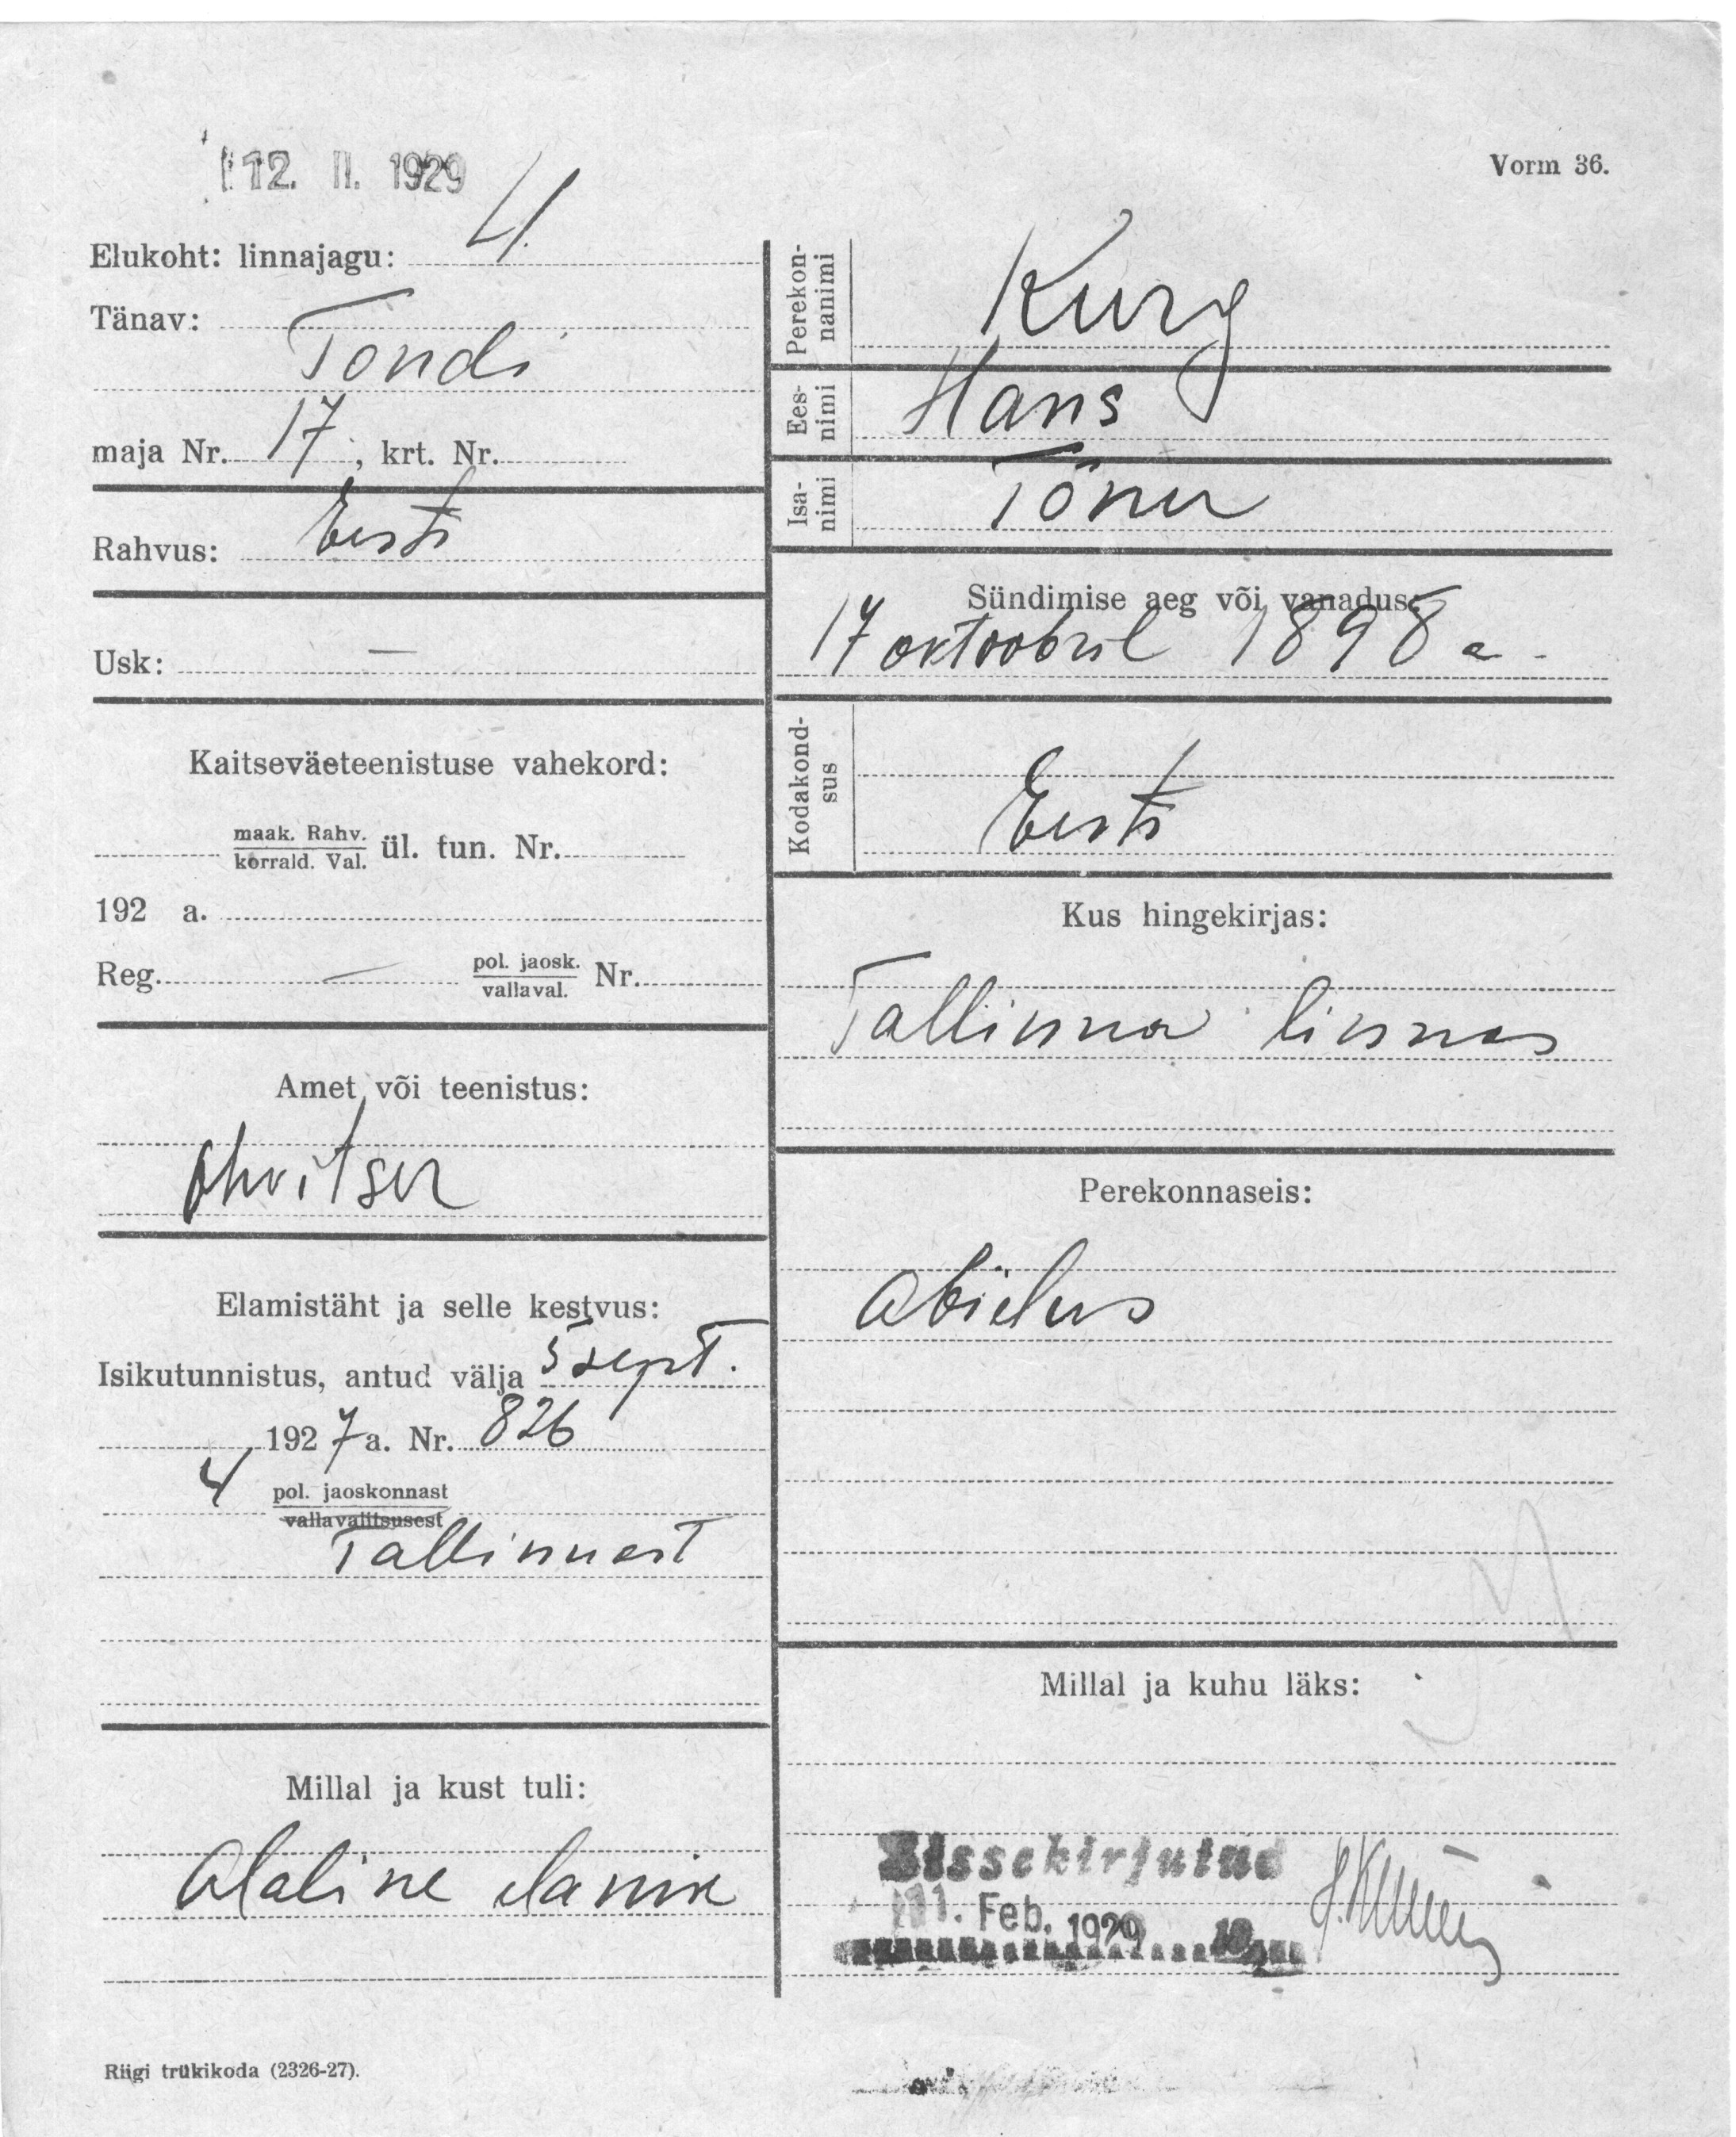 12. II. 1929
Vorm 36.
Elukoht: linnajagu: 4
Tänav:
Tondi
maja Nr. 17, krt. Nr.
Rahvus: Eesti
Usk: —
Kaitseväeteenistuse vahekord:
maak. Rahv.
korrald. Val. ül. tun. Nr.
192 a.
Reg. — pol. jaosk. Nr.
vallaval.
Amet või teenistus:
ohvitser
Elamistäht ja selle kestvus:
Isikutunnistus, antud välja 5 sept.
1927 a. Nr. 826
4 pol. jaoskonnast
vallavalitsusest
Tallinnast
Millal ja kust tuli:
Alaline elanik
Riigi trükikoda (2326-27).
Perekon-
nanimi
Kurg
Ees-
nimi
Hans
Isa-
nimi
Tõnu
Sündimise aeg või vanadus:
17 oktoobril 1898 a.
Kodakond-
sus
Eesti
Kus hingekirjas:
Tallinna linnas
Perekonnaseis:
abielus
Millal ja kuhu läks:
Sissekirjutud
11. Feb. 1929